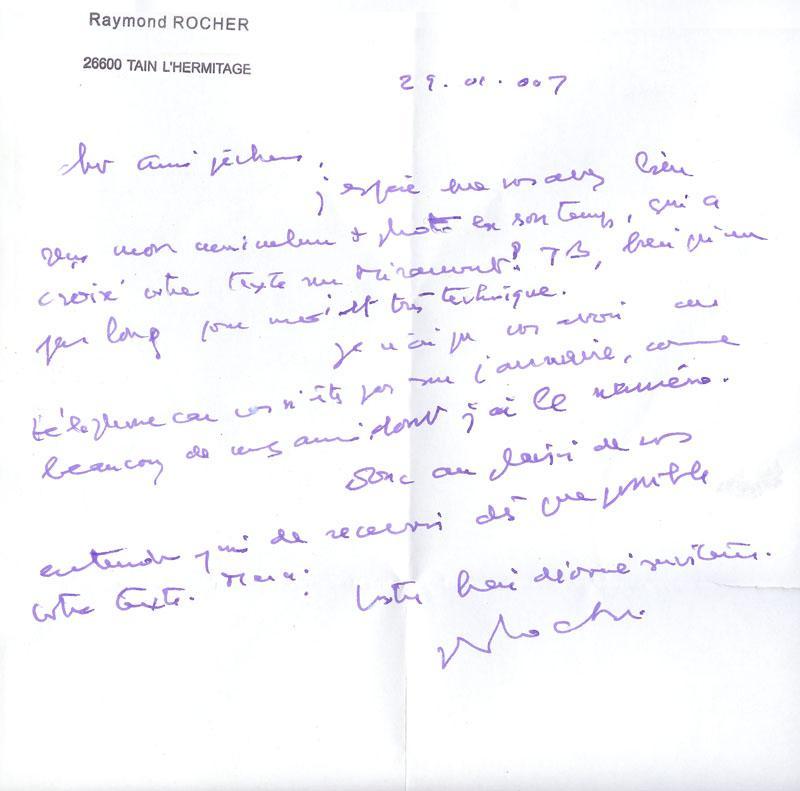 Raymond ROCHER
26600 TAIN L'HERMITAGE
29.01.007
ami pêcheur,
j'espère que vos avez bien
reçu mon + photo en son temps, qui a
croisé votre texte sur Miramont! TB, bien qu'un
peu long pour moi et très technique.
Je n'ai pu vos avoir au
téléphone car vos n'êts pas sur l'annuaire, comme
beaucoup de mes amis dont j'ai le numéro.
Donc au plaisir de vos
entendre, et de recevoir dès que possible
votre texte. Merci! Votre bien dévoué
Rocher